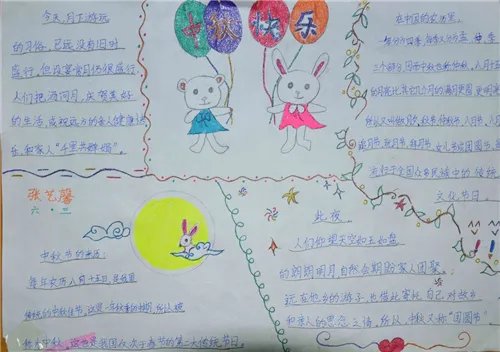 今天,月下游玩
的习俗,已远没有旧时
盛行,但设宴赏月仍很盛行,
人们把酒问月,庆贺美好
的生活,或祝远方的亲人健康快
乐,和家人“千里共婵娟”。
中秋快乐
在中国的农历里,
一年分为四季,每季又分为孟、季
三个部分,因而中秋也称仲秋,八月十五
的月亮比其它几个月的满月更圆,更明亮
所以又叫做
月夕,秋节,仲秋节,八月节,
追月节,玩月节,拜月节,女儿节或团圆节,是
流行于全国众多民族中的传统
文化节日。
张艺馨
六·二
中秋节的来历:
每年农历八月十五日,是传统
传统的中秋佳节,这是一年秋季的中期,所以被
称为中秋,这也是我国仅次于春节的第二大传统节日。
此夜,
人们仰望天空如玉如盘
的朗朗明月,自然会期盼家人团聚。
远在他乡的游子,也借此寄托自己对故乡
和亲人的思念之情,所以,中秋又称“团圆节”